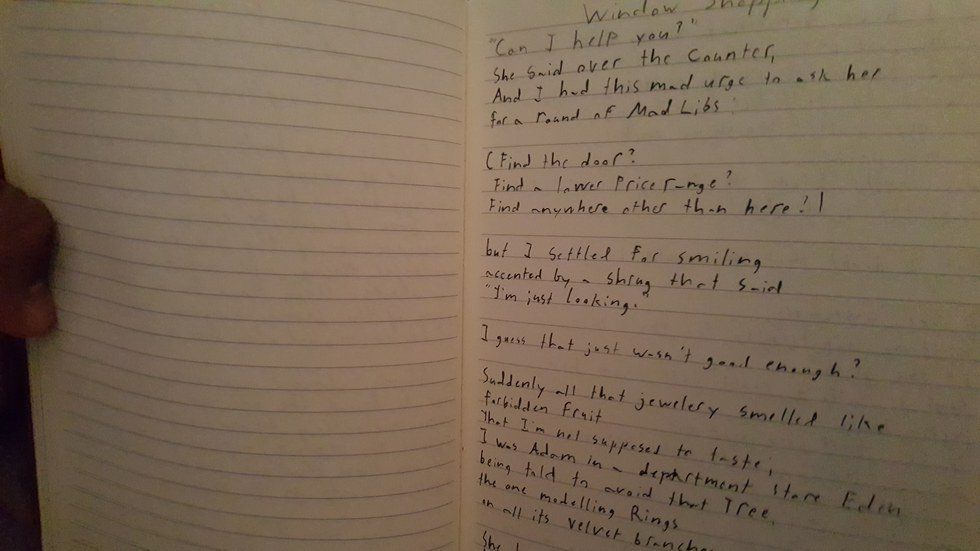 Window Shopping
"Can I help you?"
She said over the counter,
And I had this mad urge to ask her
for a round of Mad Libs:
(Find the door?
Find a lower price range?
Find anywhere other than here?)
but I settled for smiling
accented by a shrug that said
"I'm just looking."
I guess that just wasn't good enough?
Suddenly all that jewelery smelled like
forbidden fruit
that I'm not supposed to taste;
I was Adam in a department store Eden
being told to avoid that Tree,
the one modelling Rings
on all its velvet branches
She